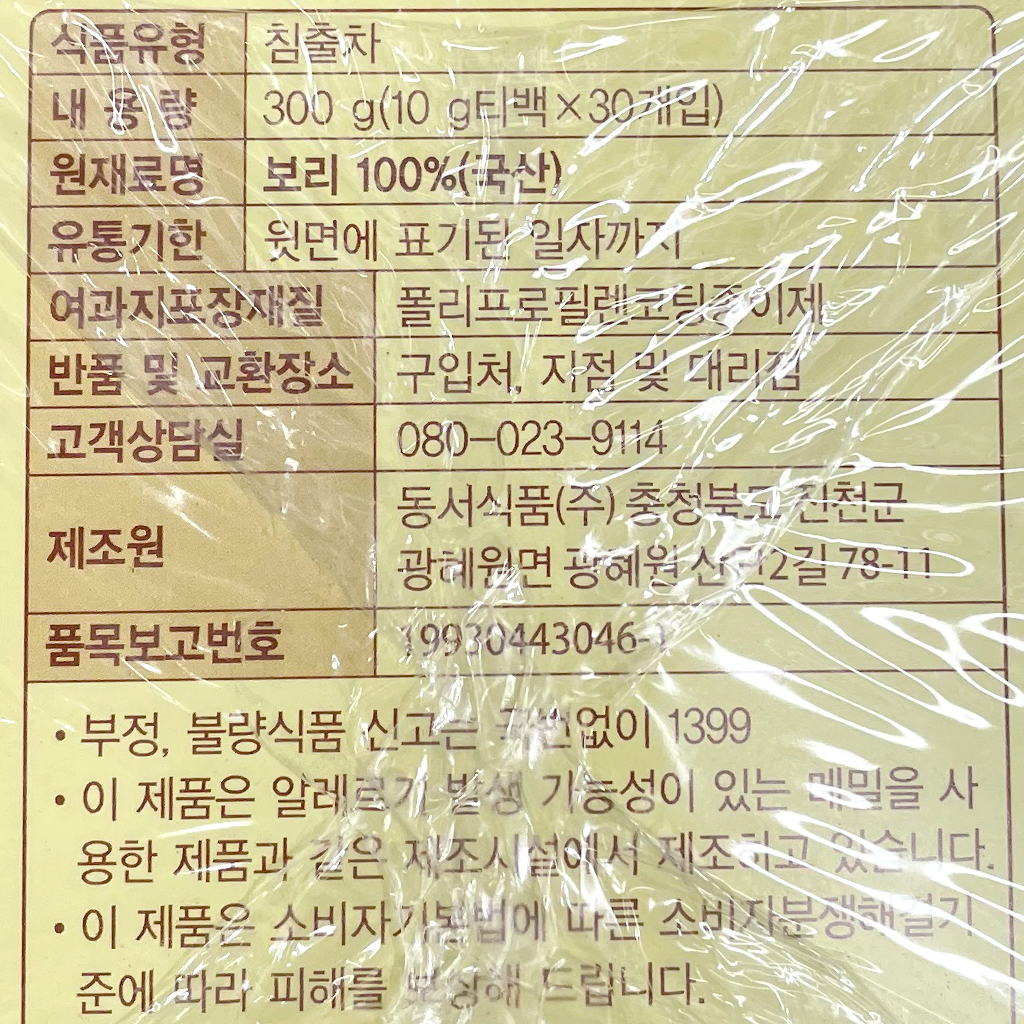 식품유형 침출차
내 용 량 300 g(10 g티백×30개입)
원재료명 보리 100%(국산)
유통기한 윗면에 표기된 일자까지
여과지포장재질 폴리프로필렌코팅종이제
반품 및 교환장소 구입처, 지점 및 대리점
고객상담실 080-023-9114
제조원 동서식품(주) 충청북도 진천군
광혜원면 광혜원산단2길 78-11
품목보고번호 19930443046-1
• 부정, 불량식품 신고는 국번없이 1399
• 이 제품은 알레르기 발생 가능성이 있는 메밀을 사
용한 제품과 같은 제조시설에서 제조하고 있습니다.
• 이 제품은 소비자기본법에 따른 소비자분쟁해결기
준에 따라 피해를 보상해 드립니다.